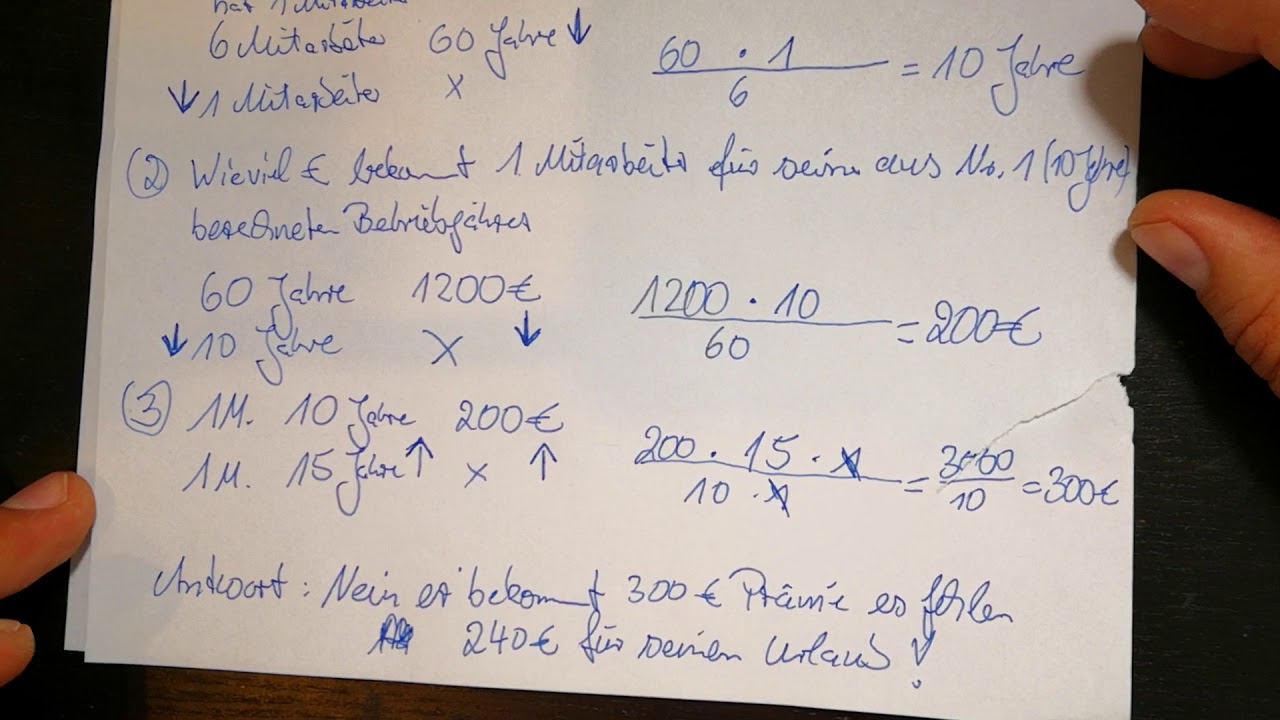 hat 1 Mitarbeiter
6 Mitarbeiter 60 Jahre ↓ 60 · 1 / 6 = 10 Jahre
↓ 1 Mitarbeiter x
(2) Wieviel € bekommt 1 Mitarbeiter für seine aus Nr. 1 (10 Jahre)
berechneten Betriebsjahres
60 Jahre 1200€ 1200 · 10 / 60 = 200€
↓ 10 Jahre x ↓
(3) 1M. 10 Jahre 200€ 200 · 15 · 1 / 10 · 1 = 3000 / 10 = 300€
1M. 15 Jahre ↑ x ↑
Antwort: Nein er bekommt 300 € Prämie es fehlen
240€ für seinen Urlaub !